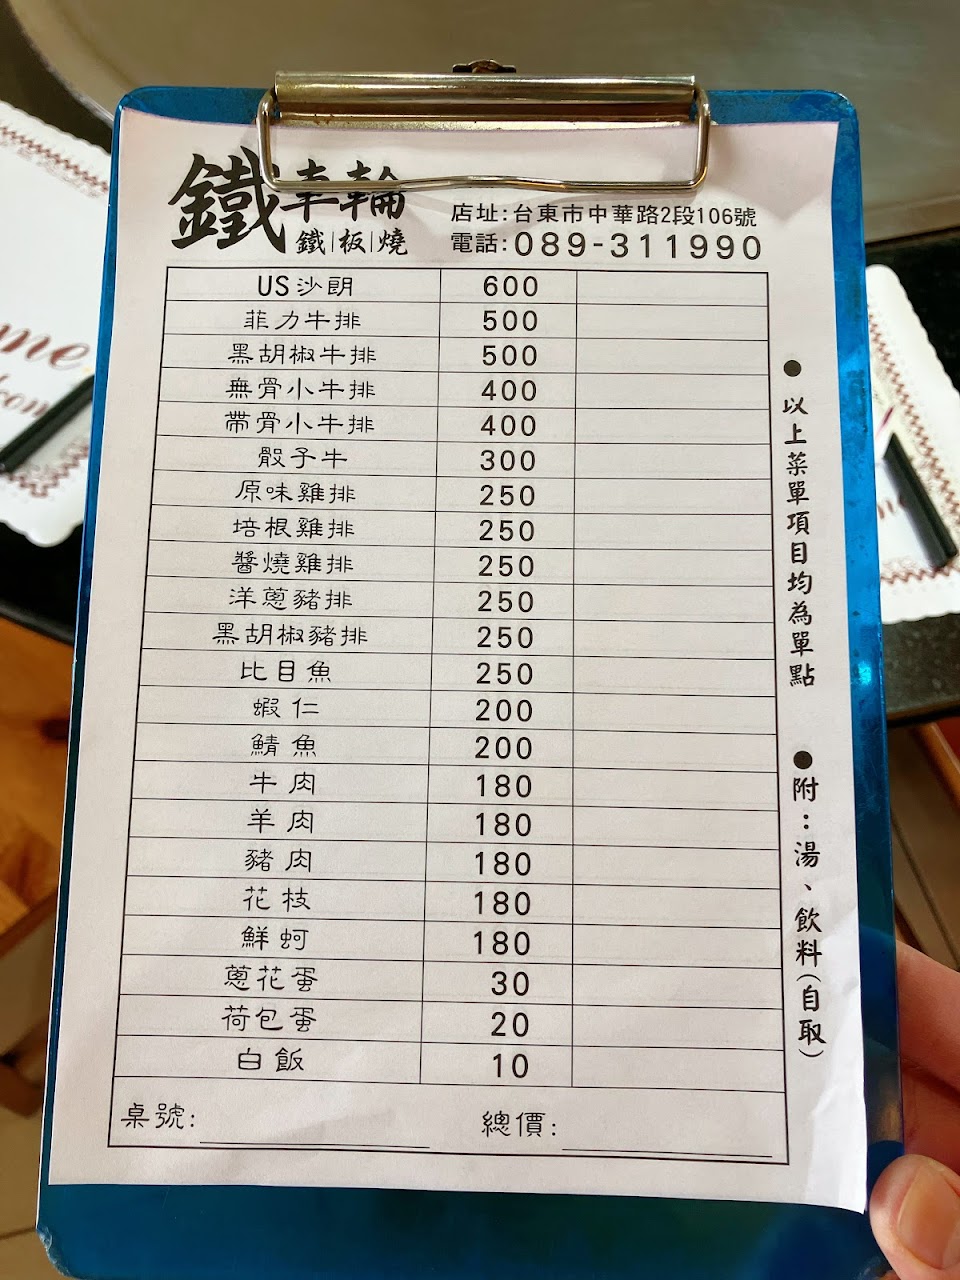 鐵車輪
鐵|板|燒
店址:台東市中華路2段106號
電話:089-311990
US沙朗 600
菲力牛排 500
黑胡椒牛排 500
無骨小牛排 400
帶骨小牛排 400
骰子牛 300
原味雞排 250
培根雞排 250
醬燒雞排 250
洋蔥豬排 250
黑胡椒豬排 250
比目魚 250
蝦仁 200
鯖魚 200
牛肉 180
羊肉 180
豬肉 180
花枝 180
鮮蚵 180
蔥花蛋 30
荷包蛋 20
白飯 10
桌號:
總價:
●以上菜單項目均為單點
●附:湯、飲料(自取)